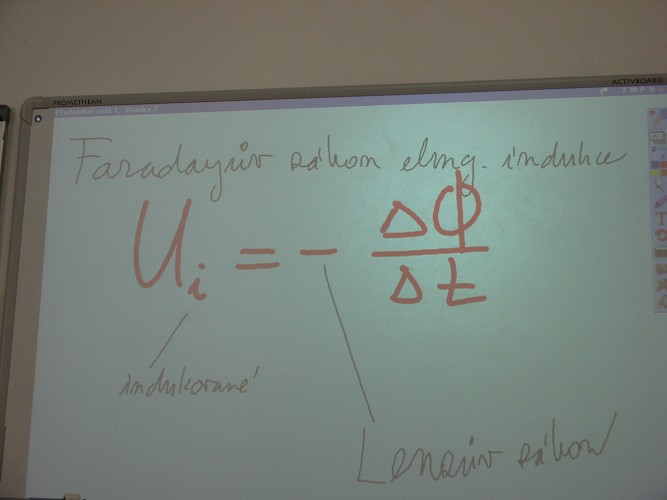 PROMETHEAN
ACTIVBOARD
Faradayův zákon elmg. indukce
Ui = - ΔΦ
Δt
indukované
Lenzův zákon